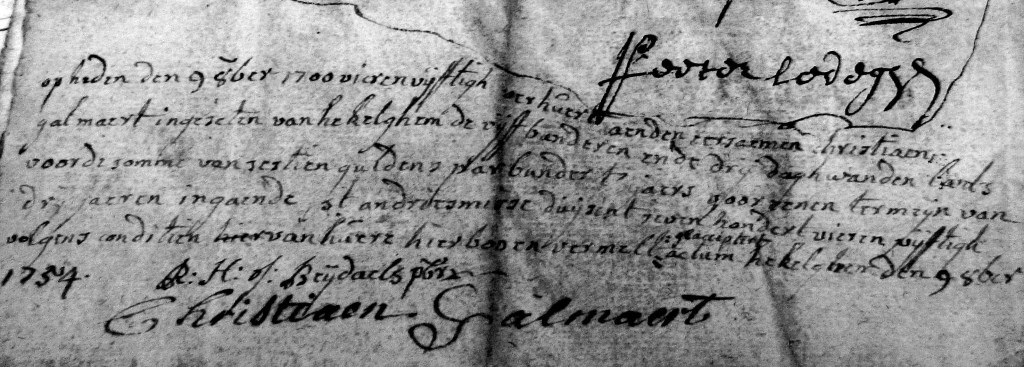 Peeter Lodegz
op heden den 9 8ber 1700 vierenvijftigh verhuert aenden eersaemen christiaen
galmaert ingeseten van hekelghem de vijf bunderen ende drij daghwanden lants
voor de somme van sestien guldens par bunder t jaers voor eenen termeijn van
drij jaeren ingaende st andriesmisse duijsint seven hondert vieren vijftigh
volgens conditien van huere hier boven vermelt actum hekelghem den 9 8ber
1754. R: H: J: Beijdaels pbr
Christiaen Galmaert